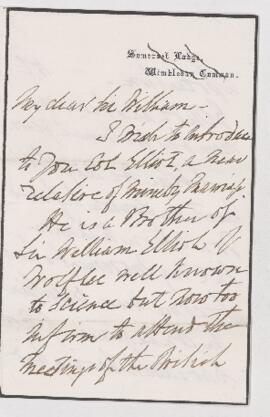 Somerset Lodge,
Wimbledon Common.
My dear Sir William -
I wish to introduce
to you Col Elliot, a near
relative of mine by marriage
He is a Brother of
Sir William Elliot of
Wolflee well known
to Science but now too
infirm to attend the
meetings of the British